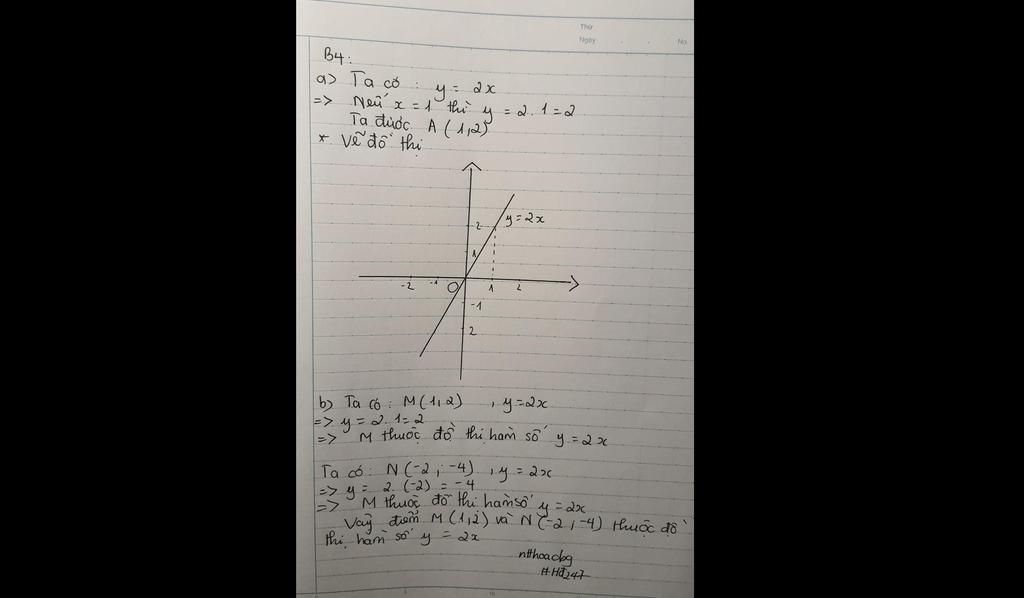 Thứ
Ngày . . No.
B4:
a) Ta có : y = 2x
=> Nếu x = 1 thì y = 2. 1 = 2
Ta được A (1,2)
* Vẽ đồ thị
y = 2x
2
1
-2 -1 O 1 2
-1
2
b) Ta có : M (1,2) , y = 2x
=> y = 2. 1 = 2
=> M thuộc đồ thị hàm số y = 2x
Ta có : N (-2 ; -4) , y = 2x
=> y = 2. (-2) = -4
=> M thuộc đồ thị hàm số y = 2x
Vậy điểm M (1,2) và N (-2 , -4) thuộc đồ
thị hàm số y = 2x
ntthoacbg
#Hđ247